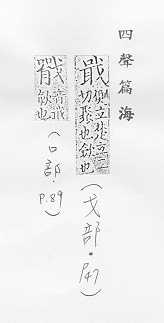 四聲篇海
立楚立二
切聚也斂也
(戈部.P.47)
音戢
斂也
(口部.P.89)